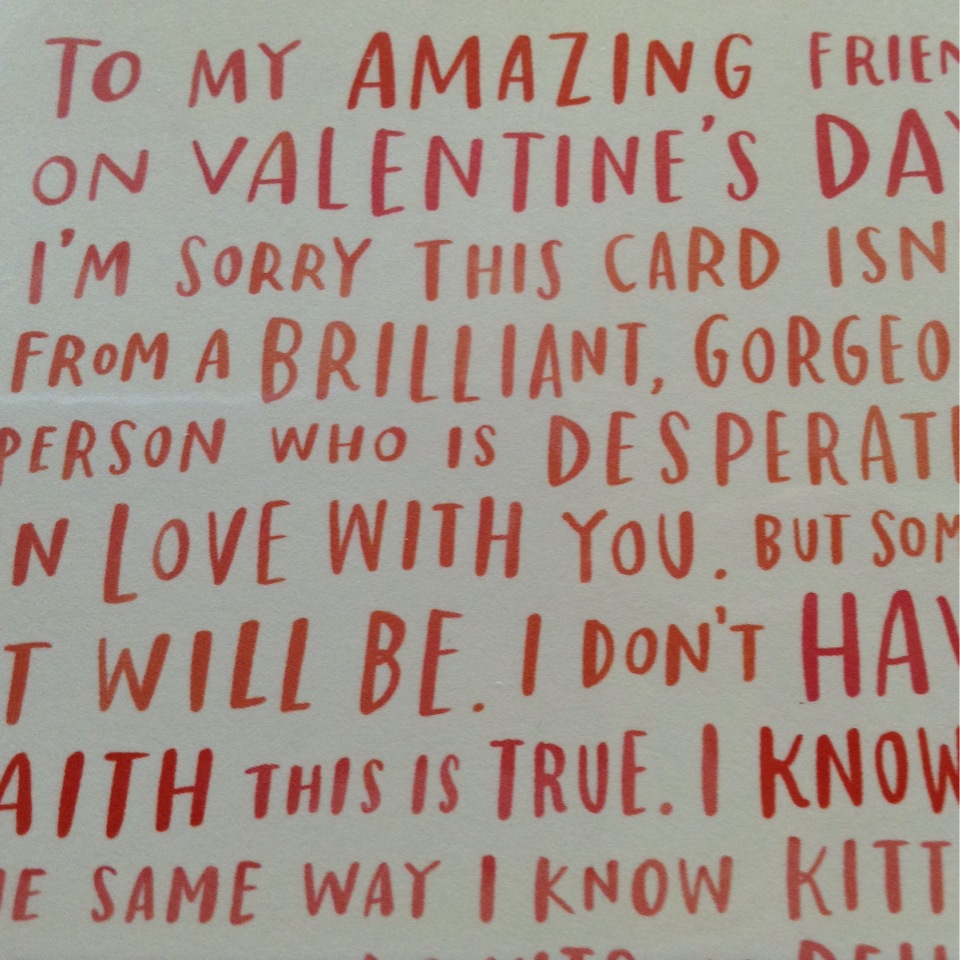 TO MY AMAZING FRIEN
ON VALENTINE'S DAY
I'M SORRY THIS CARD ISN
FROM A BRILLIANT, GORGEO
PERSON WHO IS DESPERATE
N LOVE WITH YOU. BUT SOM
T WILL BE. I DON'T HAV
AITH THIS IS TRUE. I KNOW
E SAME WAY I KNOW KITT